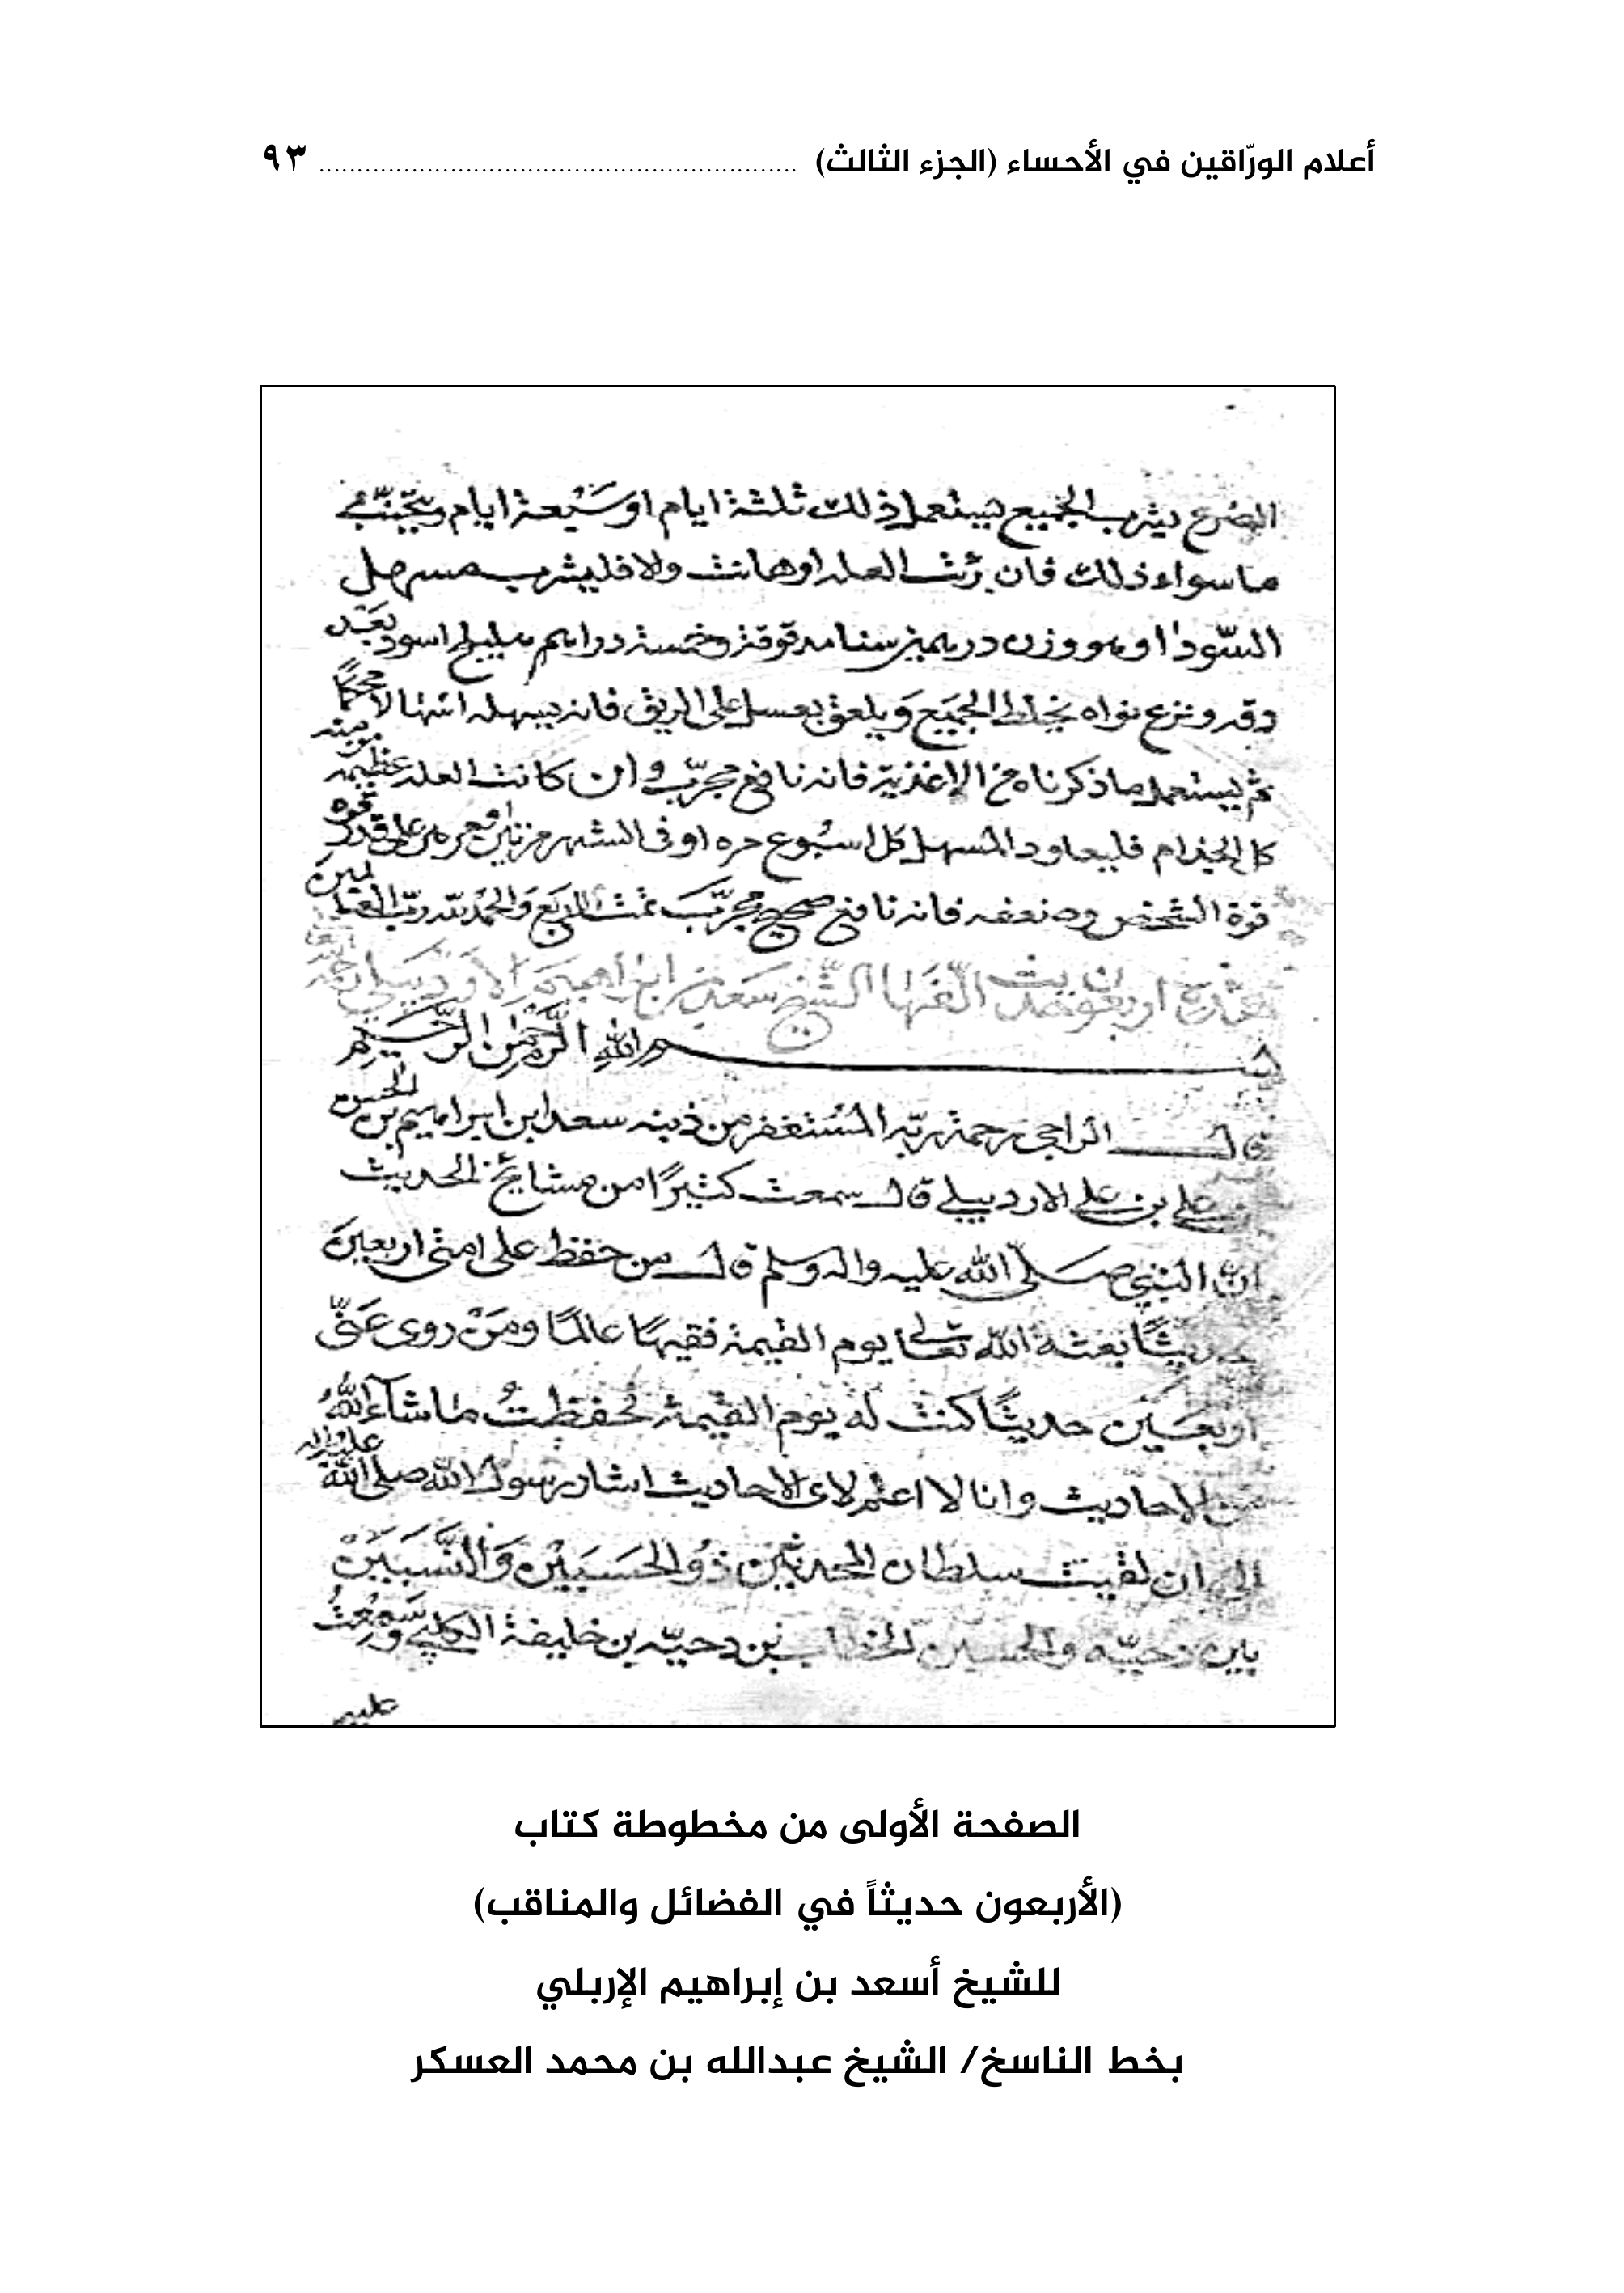 أعلام الورّاقين في الأحساء (الجزء الثالث) ................................................................ ٩٣
يشرب الجميع يستعمل ذلك ثلثة ايام او سبعة ايام ويجتنب
ما سواء ذلك فان برئت العله او هانت ولا فليشرب مسهل
السّودا وهو وزن درهمين سنامه وخمسة دراهم هليلج اسود بعد
دقه ونزع نواه يخلط الجميع ويلعق بعسل على الريق فانه يسهله اسهالا محكمًا
ثم يستعمل ما ذكرناه من الاغذية فانه نافع مجرّب وان كانت العله عظيمه
كالجذام فليعاود المسهل كل اسبوع مره او فى الشهر مرتين او مره على قدر قوه
قوة الشخص وضعفه فانه نافع صحيح مجرّب والحمد لله ربّ العالمين
الّفها الشّيخ سعد بن ابراهيم الاردبيلي
بسم الله الرّحمٰن الرّحيم
قال الراجي رحمة ربّه المستغفر من ذنبه سعد ابن ابراهيم بن الحسن
علي بن علي الاردبيلي قال سمعت كثيرًا من مشايخ الحديث
انّ النبي صلّى الله عليه واله وسلم قال من حفظ على امتى اربعين
حديثًا بعثه الله تعالى يوم القيمة فقيهًا عالمًا ومن روى عنّى
اربعين حديثًا كنت له يوم القيمة فحفظتُ ما شاء اللهُ
من الاحاديث وانا لا اعلم لاى الاحاديث اشار رسول الله صلى الله عليه واله
الى ان لقيت سلطان المحدثين ذو الحسبين والنّسبين
بين دحيّه والحسين بن دحيّه بن خليفة الكلبي وسمعتُ
عليه
الصفحة الأولى من مخطوطة كتاب
(الأربعون حديثاً في الفضائل والمناقب)
للشيخ أسعد بن إبراهيم الإربلي
بخط الناسخ/ الشيخ عبدالله بن محمد العسكر